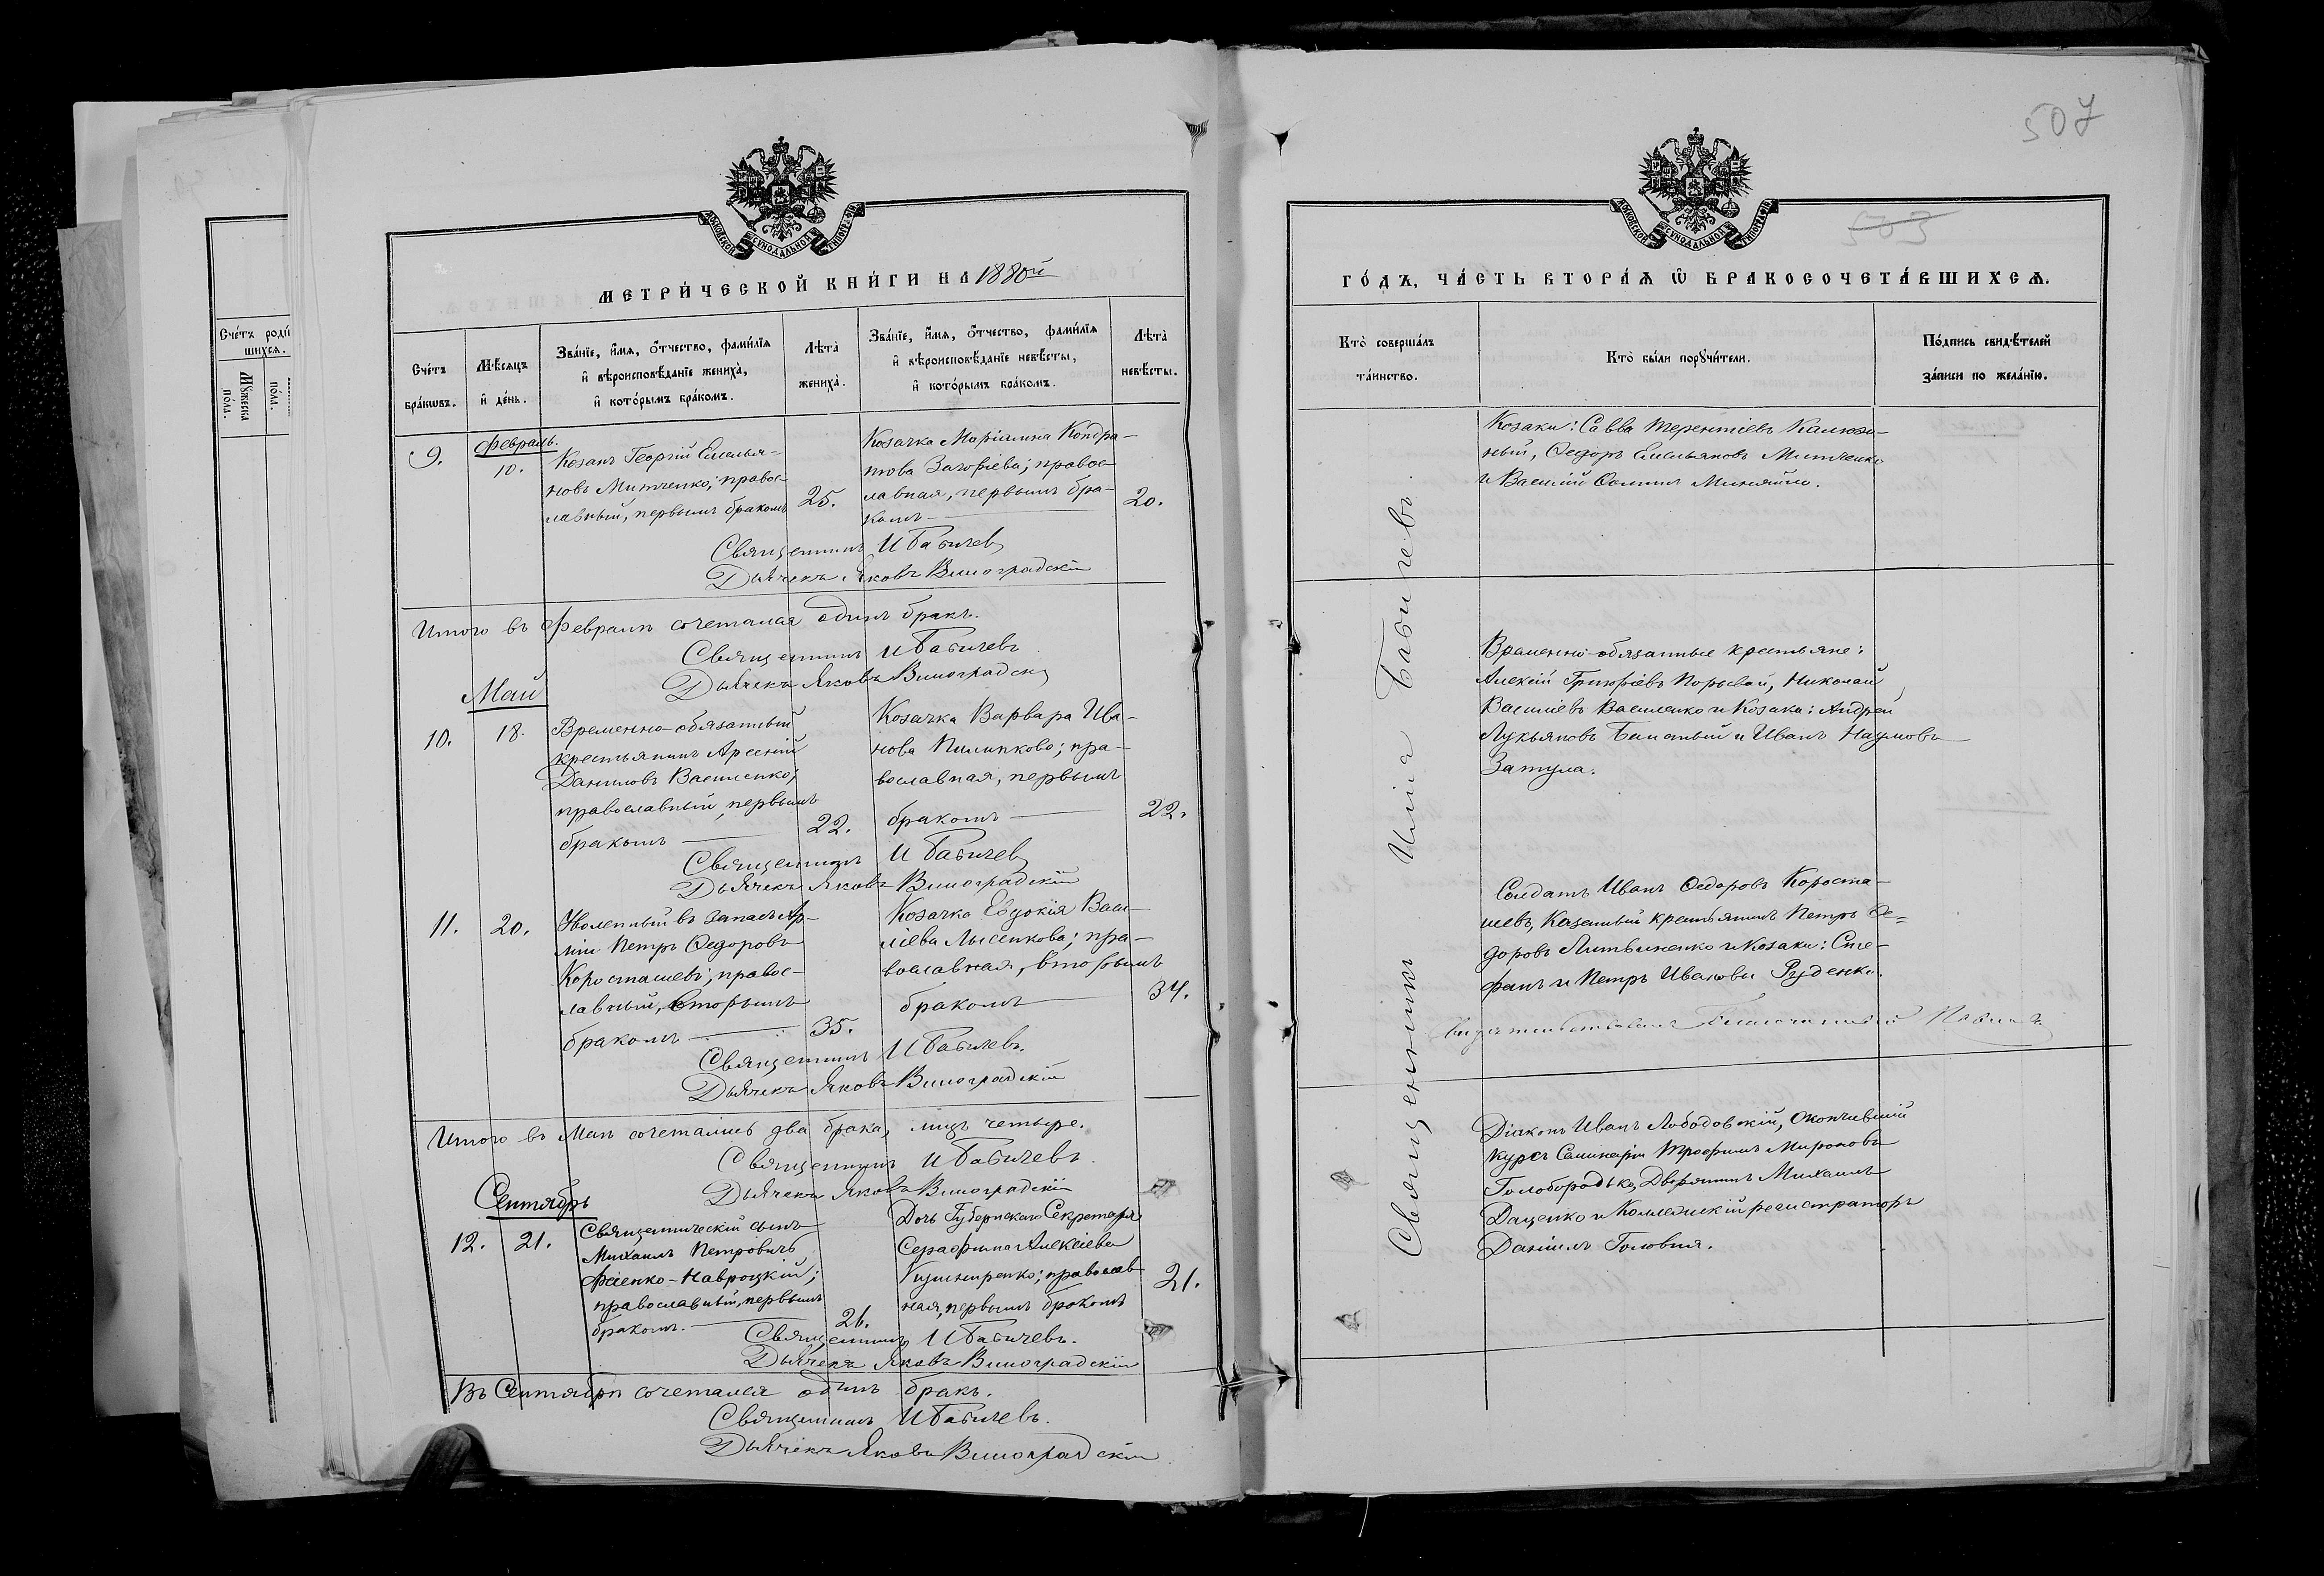 507
503
МЕТРИ́ЧЕСКОЙ КНИ́ГИ НА 1880й
ГО́ДЪ, ЧА́СТЬ ВТОРА́Я Ѿ БРАКОСОЧЕТА́ВШИХСЯ.
МОСКОВСКОЙ СѴНОДАЛЬНОЙ ТИПОГРАФІИ
МОСКОВСКОЙ СѴНОДАЛЬНОЙ ТИПОГРАФІИ
Сче́тъ роди́
шихся.
Мꙋжеска
по́ла.
по́ла.
Сче́тъ
бра́кѡвъ.
Мѣ́сяцъ
и҆ де́нь.
Зва́нїе, и҆́мя, ѻ҆́тчество, фами́лїя
и҆ вѣроисповѣ́данїе жениха̀,
и҆ кото́рымъ бра́комъ.
Лѣ́та
жениха̀.
Зва́нїе, и҆́мя, ѻ҆́тчество, фами́лїя
и҆ вѣроисповѣ́данїе невѣ́сты,
и҆ кото́рымъ бра́комъ.
Лѣ́та
невѣ́сты.
Кто̀ соверша́лъ
та́инство.
Кто̀ бы́ли порꙋчи́тели.
По́дпись свидѣ́телей
за́писи по жела́нїю.
9.
Февраль.
10.
Козакъ Георгій Емелья-
новъ Митченко; правос-
лавный, первымъ бракомъ
25.
Козачка Маріамна Кондра-
това ; правос-
лавная, первымъ бра-
комъ
20.
Козаки: Савва Терентіевъ Калюж-
ный, Ѳедоръ Емельяновъ Митченко
и Василій Ѳоминъ
Священникъ И Бабичевъ
Дьячекъ Яковъ Виноградскій
Итого въ Февралѣ сочетался одинъ бракъ.
Священникъ И Бабичевъ
Дьячекъ Яковъ Виноградскій
Май
10.
18.
Временно-обязанный
крестьянинъ Арсеній
Даниловъ Василенко;
православный, первымъ
бракомъ
22.
Козачка Варвара Ива-
нова Пилипкова; пра-
вославная, первымъ
бракомъ
22.
Временно-обязанные крестьяне:
Алексій Григоріевъ Порывай, Николай
Василіевъ Василенко и Козаки: Андрей
Лукьяновъ и Иванъ Наумовъ
Затула.
Священникъ И Бабичевъ
Дьячекъ Яковъ Виноградскій
11.
20.
Уволенный въ запасъ Ар-
міи Петръ Ѳедоровъ
Коросташевъ; правос-
лавный, вторымъ
бракомъ
35.
Козачка Евдокія Васи-
ліева Лысенкова; пра-
вославная, вторымъ
бракомъ
34.
Солдатъ Иванъ Ѳедоровъ Короста-
шевъ, Казенный крестьянинъ Петръ Ѳе=
доровъ Литвиненко и Козаки: Сте-
фанъ и Петръ Ивановы Руденки.
Священникъ И Бабичевъ.
Дьячекъ Яковъ Виноградскій
Итого въ Маѣ сочетались два брака, лицъ четыре.
Священникъ И Бабичевъ.
Дьячекъ Яковъ Виноградскій
Сентябрь
12.
21.
Священническій сынъ
Михаилъ Петровичъ
Фіенко-Навроцкій;
православный, первымъ
бракомъ.
26.
Дочь Губернскаго Секретаря
Серафима Алексіева
Кушниренко; православ
ная, первымъ бракомъ
21.
Діаконъ Иванъ Лободовскій, Окончившій
курсъ Семинаріи Трофимъ Мироновъ
Голобородько, Дворянинъ Михаилъ
Даценко и Коллежскій регистраторъ
Даніилъ Головня.
Священникъ И Бабичевъ.
Дьячекъ Яковъ Виноградскій
Въ Сентябрѣ сочетался одинъ бракъ.
Священникъ И Бабичевъ.
Дьячекъ Яковъ Виноградскій
Священникъ Илія Бабичевъ.